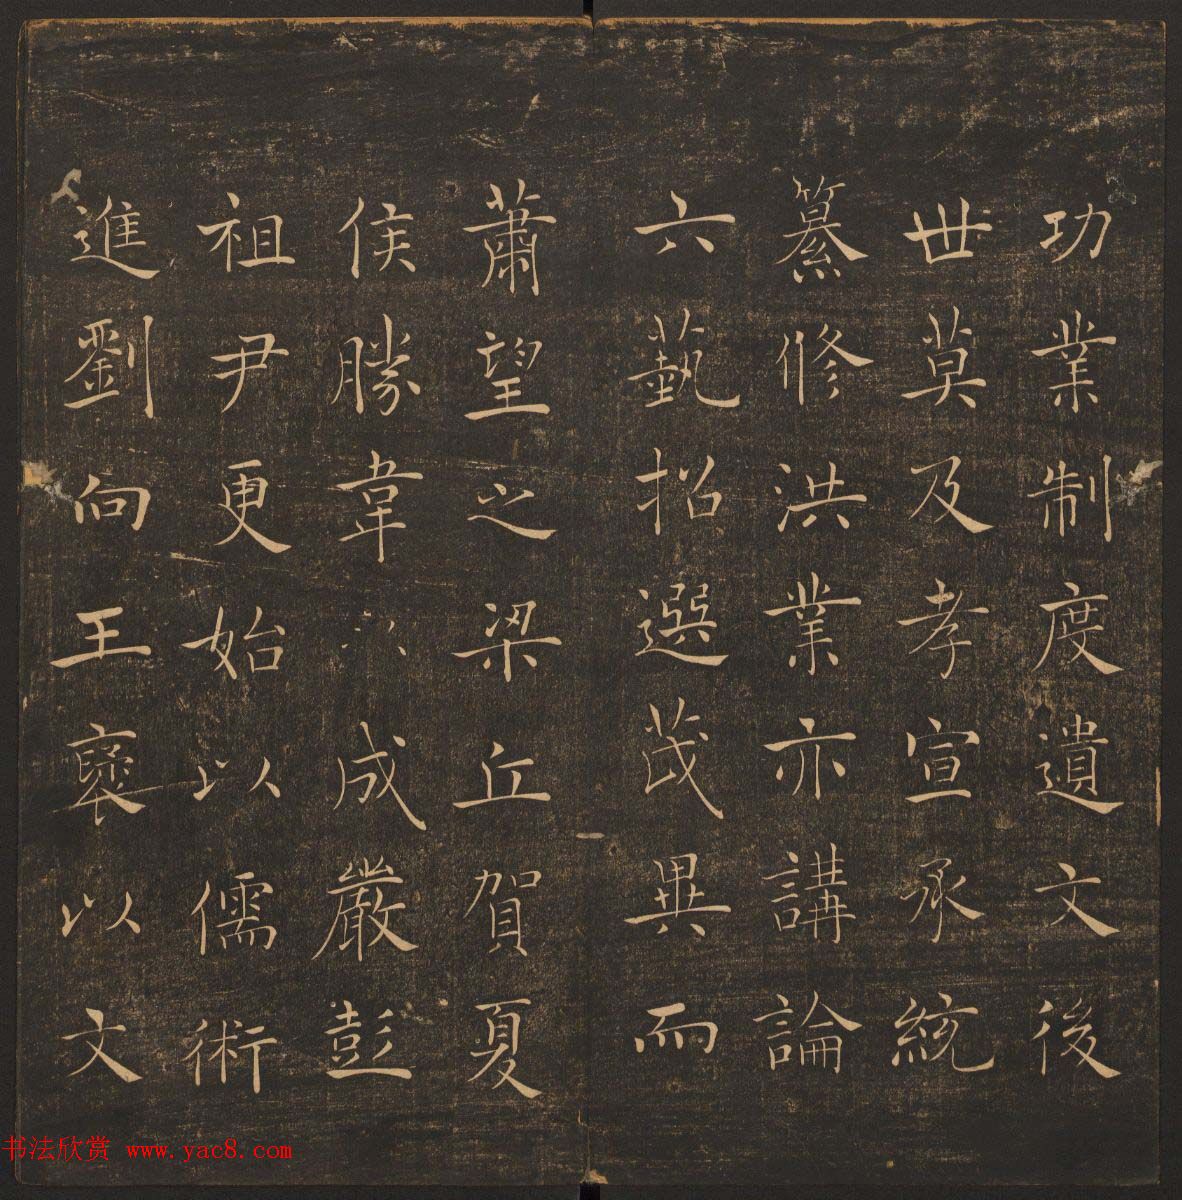 功業制度遺文後
世莫及孝宣承統
纂修洪業亦講論
六蓺招選茂異而
蕭望之梁丘賀夏
侯勝韋成嚴彭
祖尹更始以儒術
進劉向王襃以文
书法欣赏 www.yac8.com